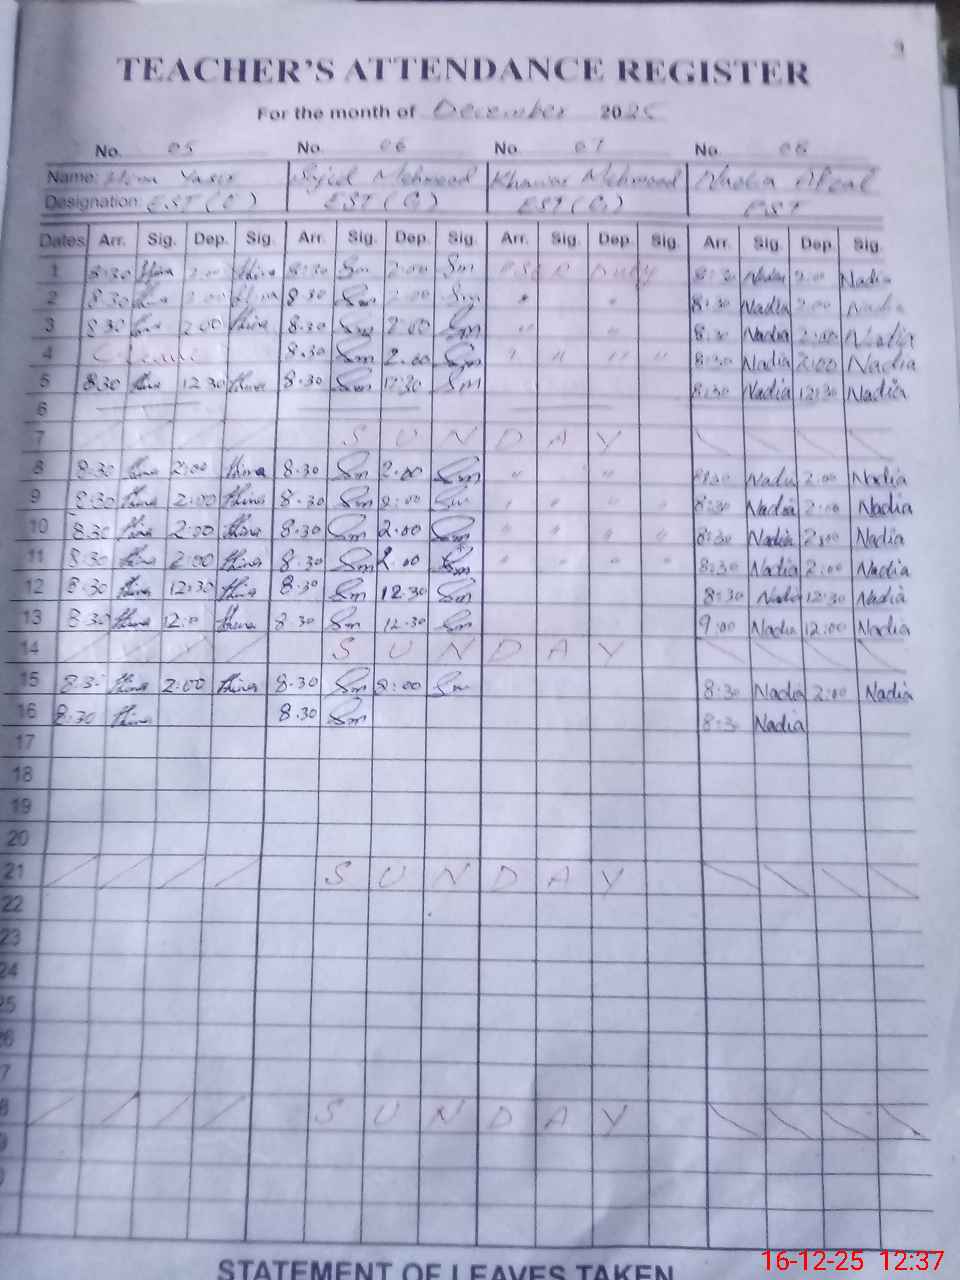 TEACHER'S ATTENDANCE REGISTER
For the month of December 2025
No. 05 No. 06 No. 07 No. 08
Name: Hina Yasir Sajid Mehmood Khawar Mehmood Nadia Afzal
Designation: EST ( ) EST (G) EST (G) PST
Dates Arr. Sig. Dep. Sig. Arr. Sig. Dep. Sig. Arr. Sig. Dep. Sig. Arr. Sig. Dep. Sig.
1 8:30 Hina 2:00 Hina 8:30 Sm 2:00 Sm Duty 8:30 Nadia 2:00 Nadia
2 8.30 Hina 2:00 Hina 8.30 Sm 2:00 Sm " " 8:30 Nadia 2:00 Nadia
3 8.30 Hina 2:00 Hina 8.30 Sm 2:00 Sm " " 8:30 Nadia 2:00 Nadia
4 C. Leave 8.30 Sm 2.00 Sm " " " " 8:30 Nadia 2:00 Nadia
5 8.30 Hina 12.30 Hina 8.30 Sm 12:30 Sm 8:30 Nadia 12:30 Nadia
6
7 S U N D A Y
8 8.30 Hina 2:00 Hina 8.30 Sm 2.00 Sm " " 8:30 Nadia 2:00 Nadia
9 8:30 Hina 2:00 Hina 8.30 Sm 2:00 Sm " " " " 8:30 Nadia 2:00 Nadia
10 8.30 Hina 2:00 Hina 8.30 Sm 2.00 Sm " " " " 8:30 Nadia 2:00 Nadia
11 8.30 Hina 2:00 Hina 8.30 Sm 2.00 Sm " " " " 8:30 Nadia 2:00 Nadia
12 8.30 Hina 12:30 Hina 8.30 Sm 12.30 Sm 8:30 Nadia 12:30 Nadia
13 8.30 Hina 12:0 Hina 8.30 Sm 12.30 Sm 9:00 Nadia 12:00 Nadia
14 S U N D A Y
15 8.3 Hina 2:00 Hina 8.30 Sm 2:00 Sm 8:30 Nadia 2:00 Nadia
16 8.30 Hina 8.30 Sm 8:3 Nadia
17
18
19
20
21 S U N D A Y
22
23
24
25
26
7
8 S U N D A Y
9
STATEMENT OF LEAVES TAKEN
16-12-25 12:37